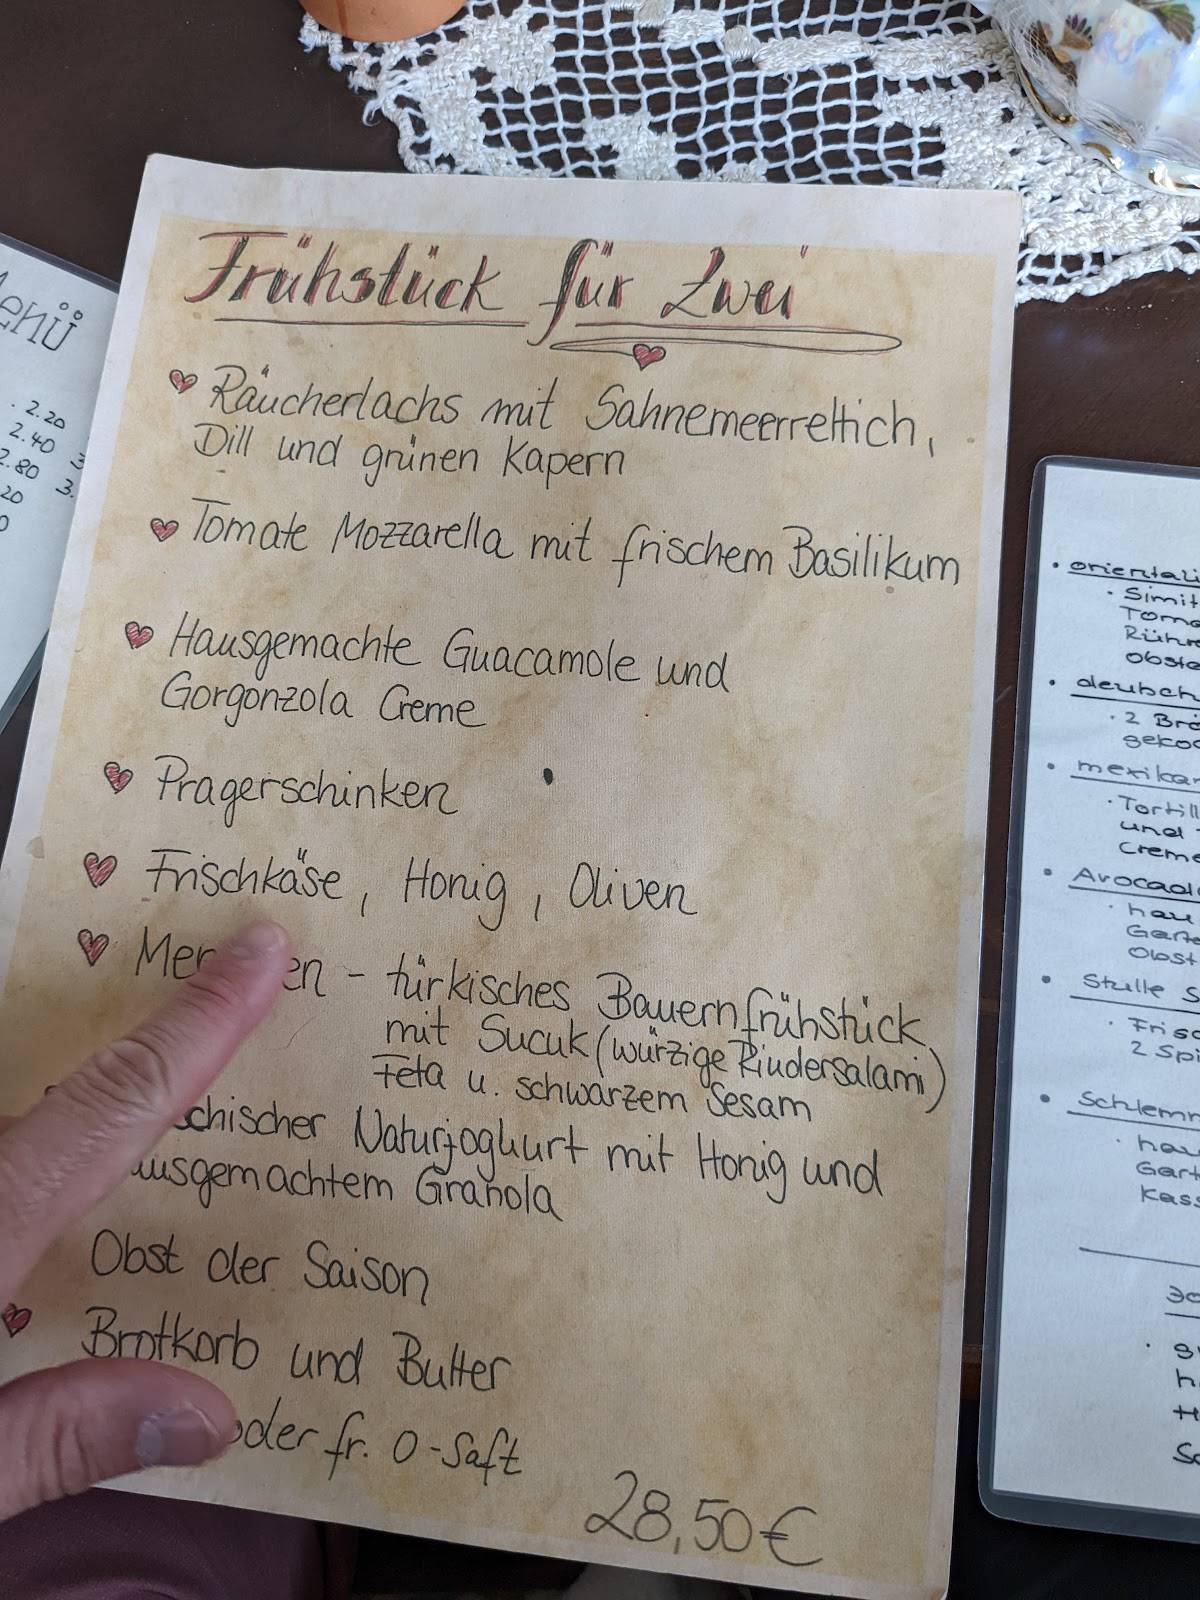 Frühstück für Zwei
Räucherlachs mit Sahnemeerrettich,
Dill und grünen Kapern
Tomate Mozzarella mit frischem Basilikum
Hausgemachte Guacamole und
Gorgonzola Creme
Pragerschinken
Frischkäse, Honig, Oliven
- türkisches Bauernfrühstück
mit Sucuk (würzige Rindersalami)
Feta u. schwarzem Sesam
Naturjoghurt mit Honig und
Granola
Obst der Saison
Brotkorb und Butter
oder fr. O-Saft
28,50€
enü
2.20
2.40
2.80
orientali
Simit
Toma
Rühre
obste
deutsch
2 Brö
gekoc
mexikan
Tortill
und
Creme
Avocado
hau
Garte
Obst
Stulle S
Frisc
2 Spi
Schlemm
hau
Garte
Kass